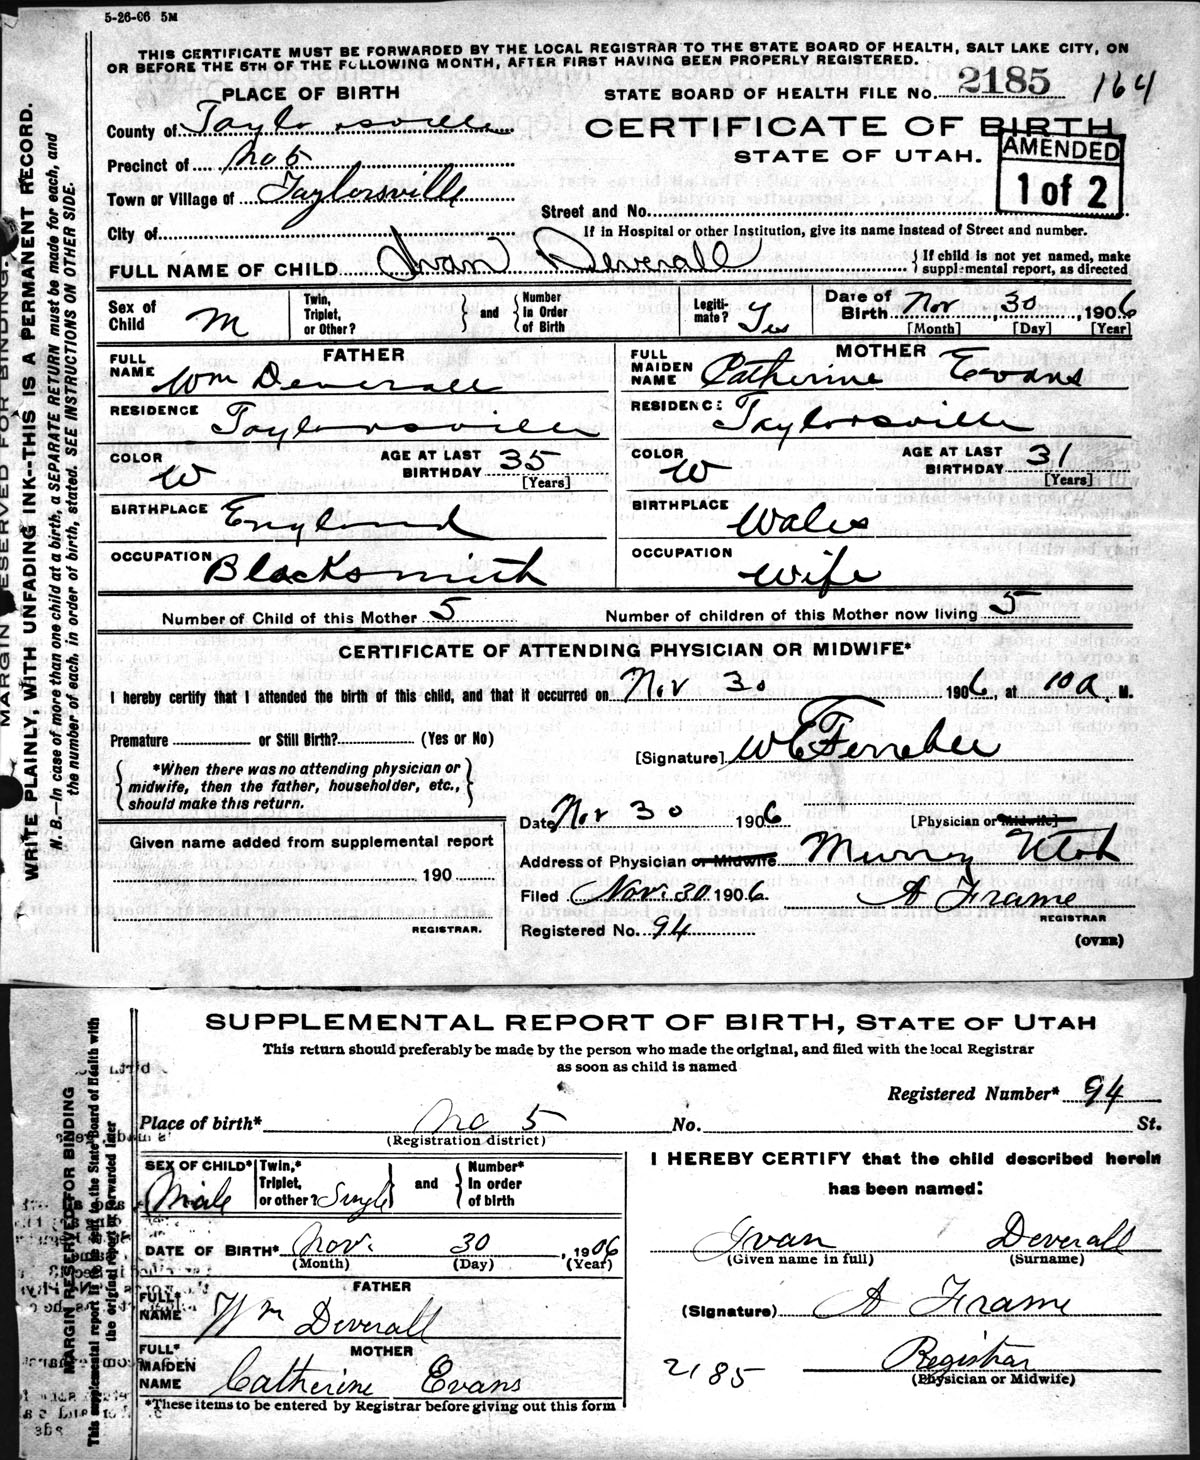 5-26-06 5M
THIS CERTIFICATE MUST BE FORWARDED BY THE LOCAL REGISTRAR TO THE STATE BOARD OF HEALTH, SALT LAKE CITY, ON
OR BEFORE THE 5TH OF THE FOLLOWING MONTH, AFTER FIRST HAVING BEEN PROPERLY REGISTERED.
PLACE OF BIRTH
STATE BOARD OF HEALTH FILE NO. 2185 164
County of Taylorsville
CERTIFICATE OF BIRTH
Precinct of No 5
STATE OF UTAH.
AMENDED
1 of 2
Town or Village of Taylorsville
Street and No.
City of
If in Hospital or other Institution, give its name instead of Street and number.
FULL NAME OF CHILD Ivan Deverall
If child is not yet named, make
supplemental report, as directed
Sex of Child M
Twin, Triplet, or Other? and Number In Order of Birth
Legiti-mate? Yes
Date of Birth Nov 30, 1906
[Month] [Day] [Year]
FATHER
FULL NAME Wm Deverall
RESIDENCE Taylorsville
COLOR W AGE AT LAST BIRTHDAY 35
[Years]
BIRTHPLACE England
OCCUPATION Blacksmith
MOTHER
FULL MAIDEN NAME Catherine Evans
RESIDENCE Taylorsville
COLOR W AGE AT LAST BIRTHDAY 31
[Years]
BIRTHPLACE Wales
OCCUPATION Wife
Number of Child of this Mother 5 Number of children of this Mother now living 5
CERTIFICATE OF ATTENDING PHYSICIAN OR MIDWIFE*
I hereby certify that I attended the birth of this child, and that it occurred on Nov 30 1906, at 10 a. M.
Premature or Still Birth? (Yes or No)
[Signature] W E Ferrebee
*When there was no attending physician or
midwife, then the father, householder, etc.,
should make this return.
Date Nov 30 1906
[Physician or Midwife]
Given name added from supplemental report
190
REGISTRAR.
Address of Physician or Midwife Murray Utah
Filed Nov. 30 1906. A Frame
REGISTRAR
Registered No. 94
(OVER)
MARGIN RESERVED FOR BINDING.
WRITE PLAINLY, WITH UNFADING INK--THIS IS A PERMANENT RECORD.
N. B.—In case of more than one child at a birth, a SEPARATE RETURN must be made for each, and
the number of each, in order of birth, stated. SEE INSTRUCTIONS ON OTHER SIDE.
SUPPLEMENTAL REPORT OF BIRTH, STATE OF UTAH
This return should preferably be made by the person who made the original, and filed with the local Registrar
as soon as child is named
Registered Number* 94
Place of birth* No 5 No. St.
(Registration district)
SEX OF CHILD* Male
Twin,* Triplet, or other? Single and Number* In order of birth
DATE OF BIRTH* Nov. 30, 1906
(Month) (Day) (Year)
FATHER
FULL* NAME Wm Deverall
MOTHER
FULL* MAIDEN NAME Catherine Evans
*These items to be entered by Registrar before giving out this form
I HEREBY CERTIFY that the child described herein
has been named:
Ivan Deverall
(Given name in full) (Surname)
(Signature) A Frame
Registrar
(Physician or Midwife)
2185
MARGIN RESERVED FOR BINDING
This supplemental report is to be sent to the State Board of Health with
the original report if forwarded later